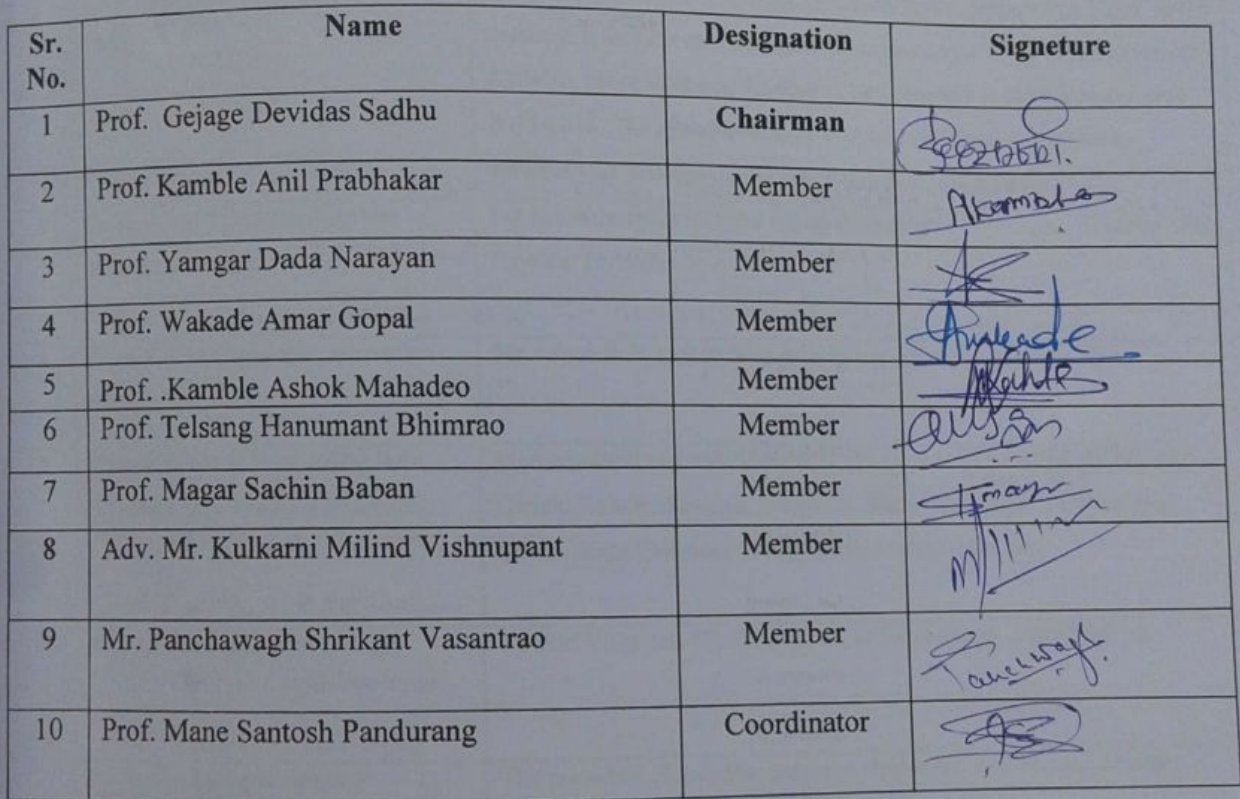 Sr. No. Name Designation Signeture
1 Prof. Gejage Devidas Sadhu Chairman
2 Prof. Kamble Anil Prabhakar Member
3 Prof. Yamgar Dada Narayan Member
4 Prof. Wakade Amar Gopal Member
5 Prof. .Kamble Ashok Mahadeo Member
6 Prof. Telsang Hanumant Bhimrao Member
7 Prof. Magar Sachin Baban Member
8 Adv. Mr. Kulkarni Milind Vishnupant Member
9 Mr. Panchawagh Shrikant Vasantrao Member
10 Prof. Mane Santosh Pandurang Coordinator